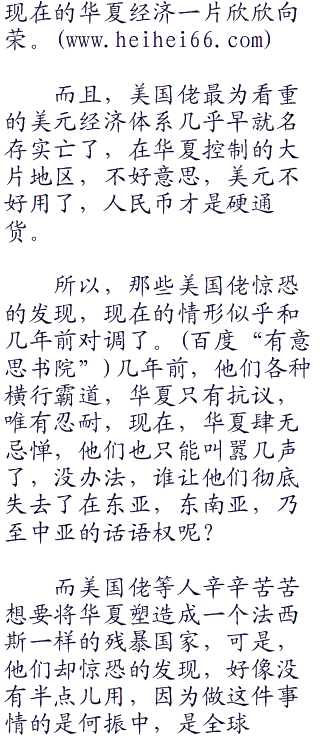 现在的华夏经济一片欣欣向
荣。(www.heihei66.com)
而且，美国佬最为看重
的美元经济体系几乎早就名
存实亡了，在华夏控制的大
片地区，不好意思，美元不
好用了，人民币才是硬通
货。
所以，那些美国佬惊恐
的发现，现在的情形似乎和
几年前对调了。(百度“有意
思书院”)几年前，他们各种
横行霸道，华夏只有抗议，
唯有忍耐，现在，华夏肆无
忌惮，他们也只能叫嚣几声
了，没办法，谁让他们彻底
失去了在东亚，东南亚，乃
至中亚的话语权呢？
而美国佬等人辛辛苦苦
想要将华夏塑造成一个法西
斯一样的残暴国家，可是，
他们却惊恐的发现，好像没
有半点儿用，因为做这件事
情的是何振中，是全球